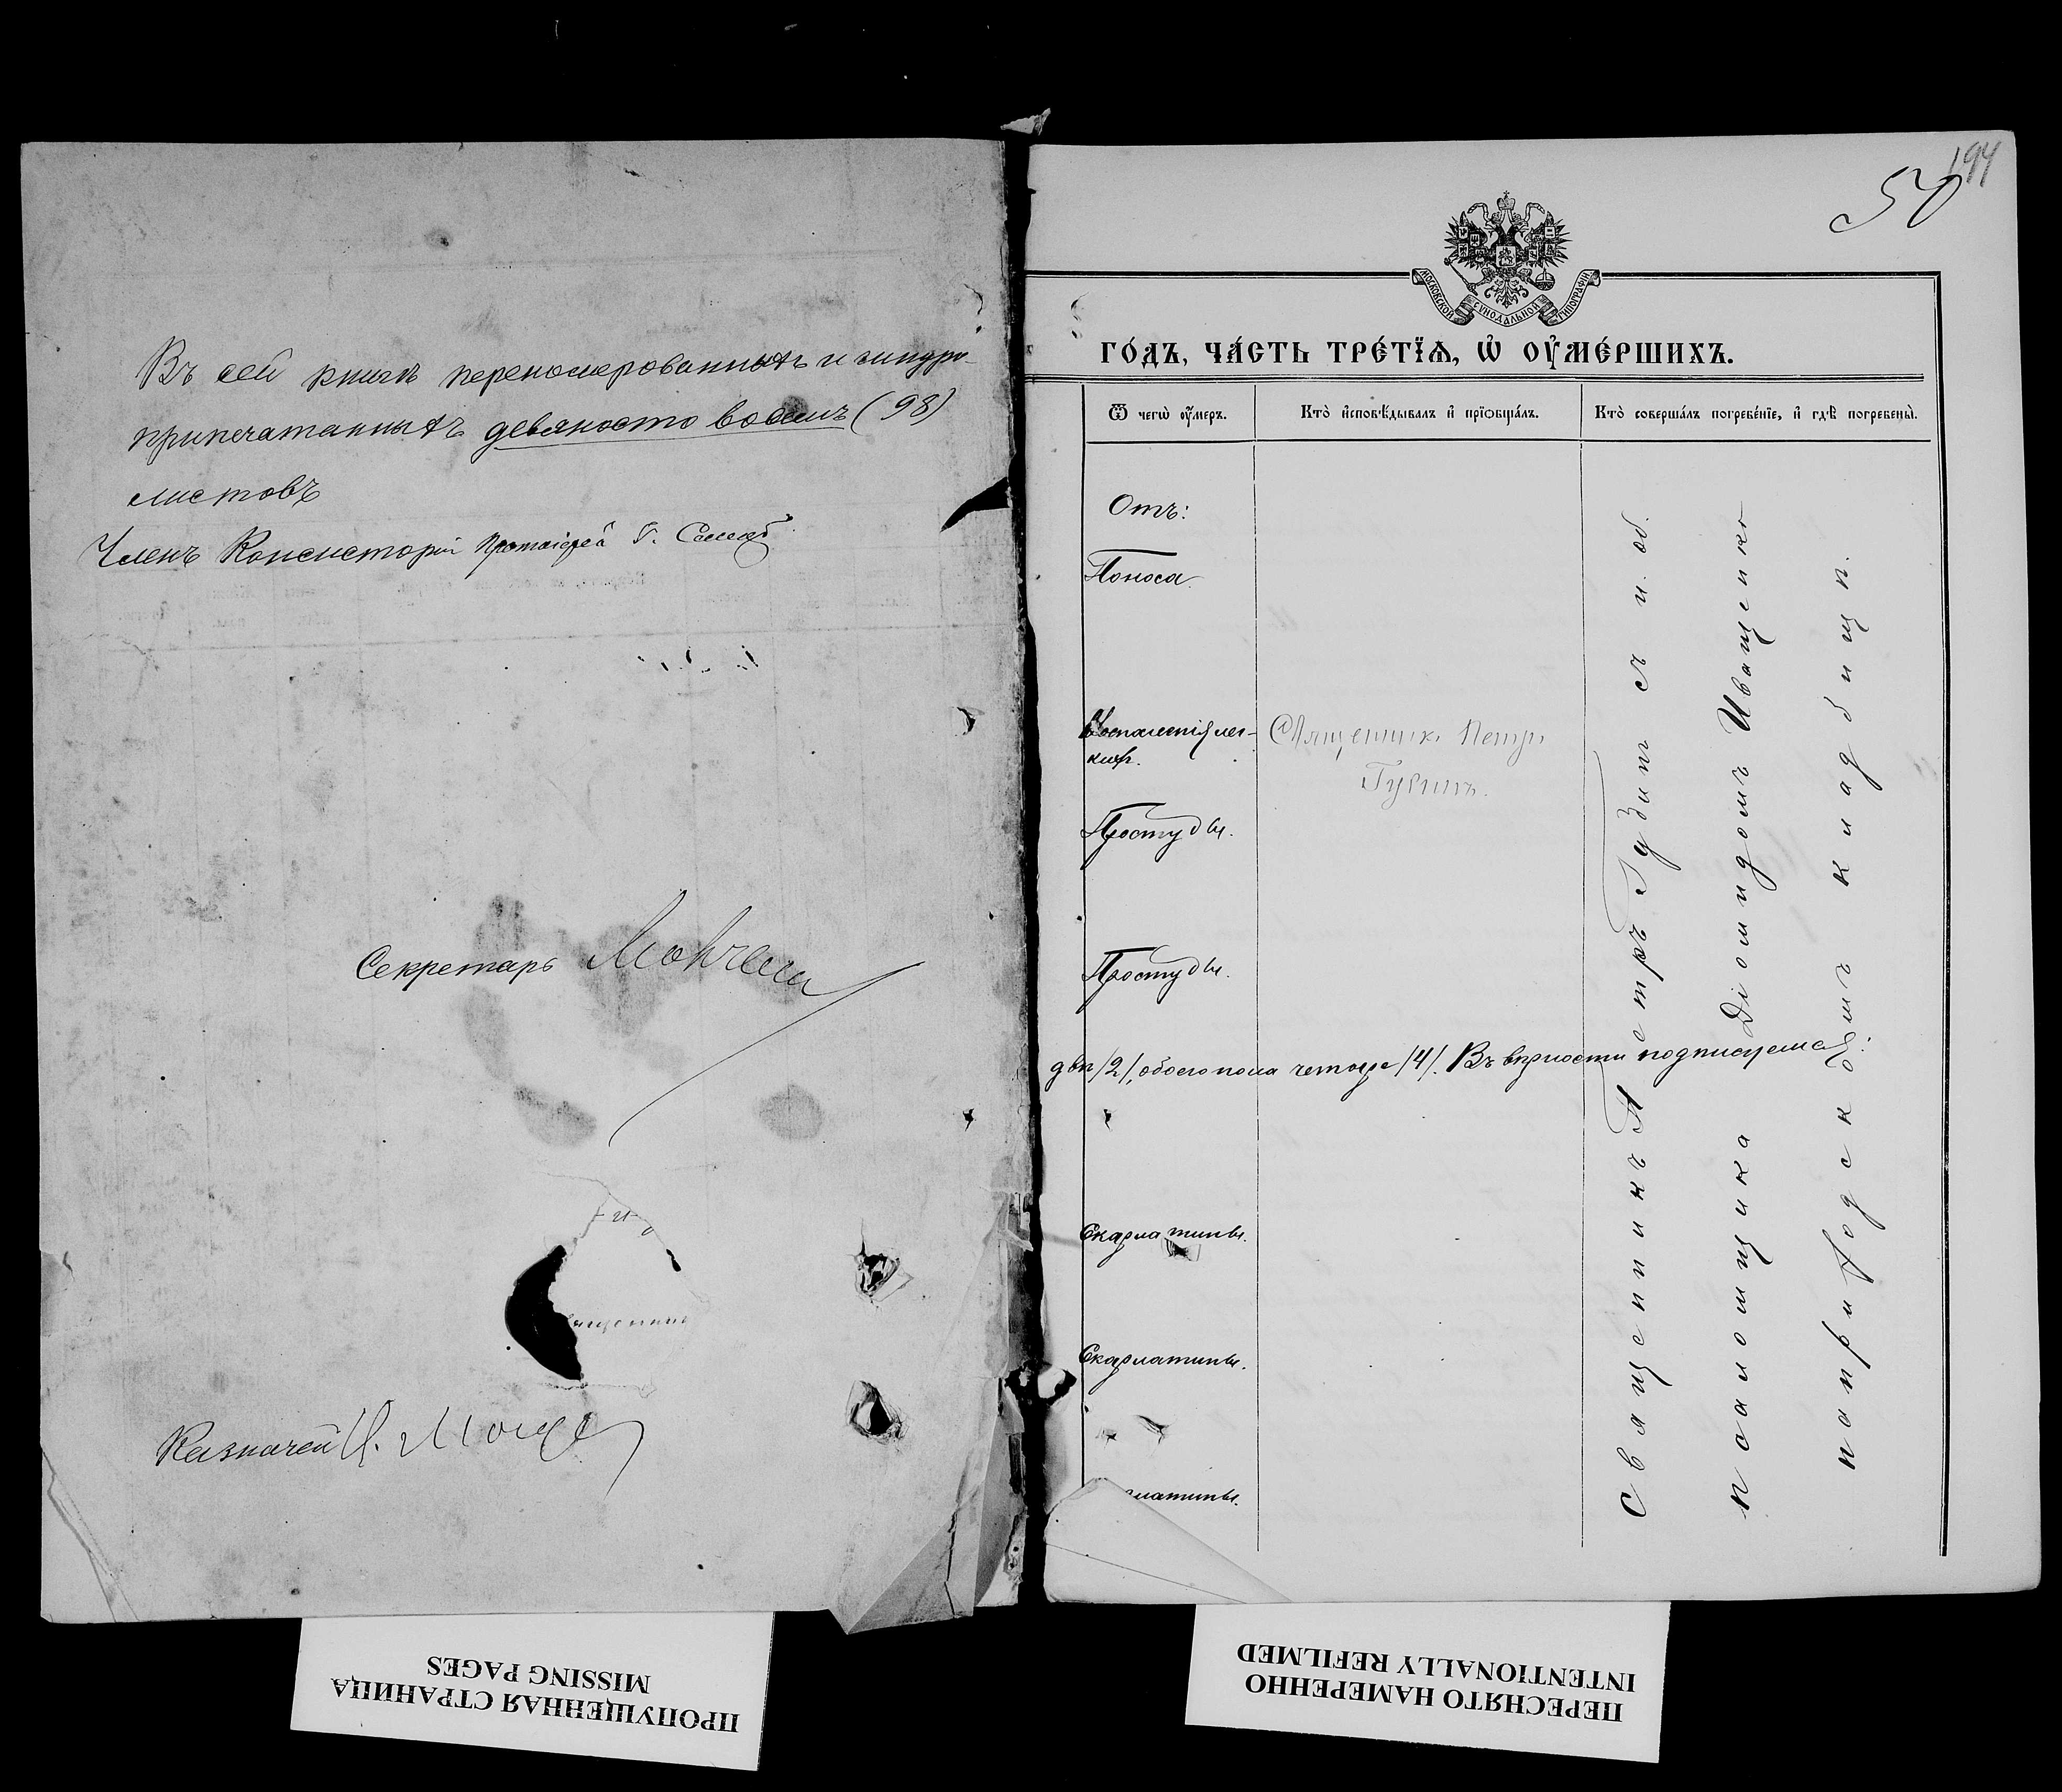 Въ сей книгѣ перенумерованныхъ и шнуро-
припечатанныхъ девяносто восемь (98)
листовъ
Членъ Консисторіи Протоіерей Г.
Секретарь
Казначей
194
50
МОСКОВСКОЙ СѴНОДАЛЬНОЙ ТИПОГРАФІИ
ГО́ДЪ, ЧА́СТЬ ТРЕ́ТЇѦ, Ѡ҆ ОУ҆МЕ́РШИХЪ.
Ѿ чегѡ̀ оу҆́меръ.
Кто̀ и҆сповѣ́дывалъ и҆ прїѡбща́лъ.
Кто̀ соверша́лъ погребе́нїе, и҆ гдѣ̀ погребены̀.
Отъ:
Поноса.
Воспаленія лег-
кихъ.
Священникъ Петръ
Гузинъ.
Простуды.
Простуды.
двѣ /2/, обоего пола четыре /4/. Въ вѣрности подписуемся:
Скарлатины.
Скарлатины.
латины.
Священникъ Петръ Гузинъ съ и. об.
псаломщика Діомидомъ Иващенко
на приходскомъ кладбищѣ.
ПРОПУЩЕННАЯ СТРАНИЦА
MISSING PAGES
ПЕРЕСНЯТО НАМЕРЕННО
INTENTIONALLY REFILMED